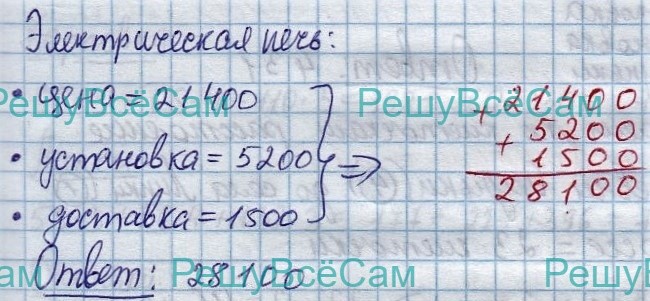 Электрическая печь:
• цена = 21400
• установка = 5200
• доставка = 1500
⇒
+ 21400
+ 5200
1500
28100
Ответ: 28100
РешуВсёСам
РешуВсёСам
ам
РешуВсёСам
Решу